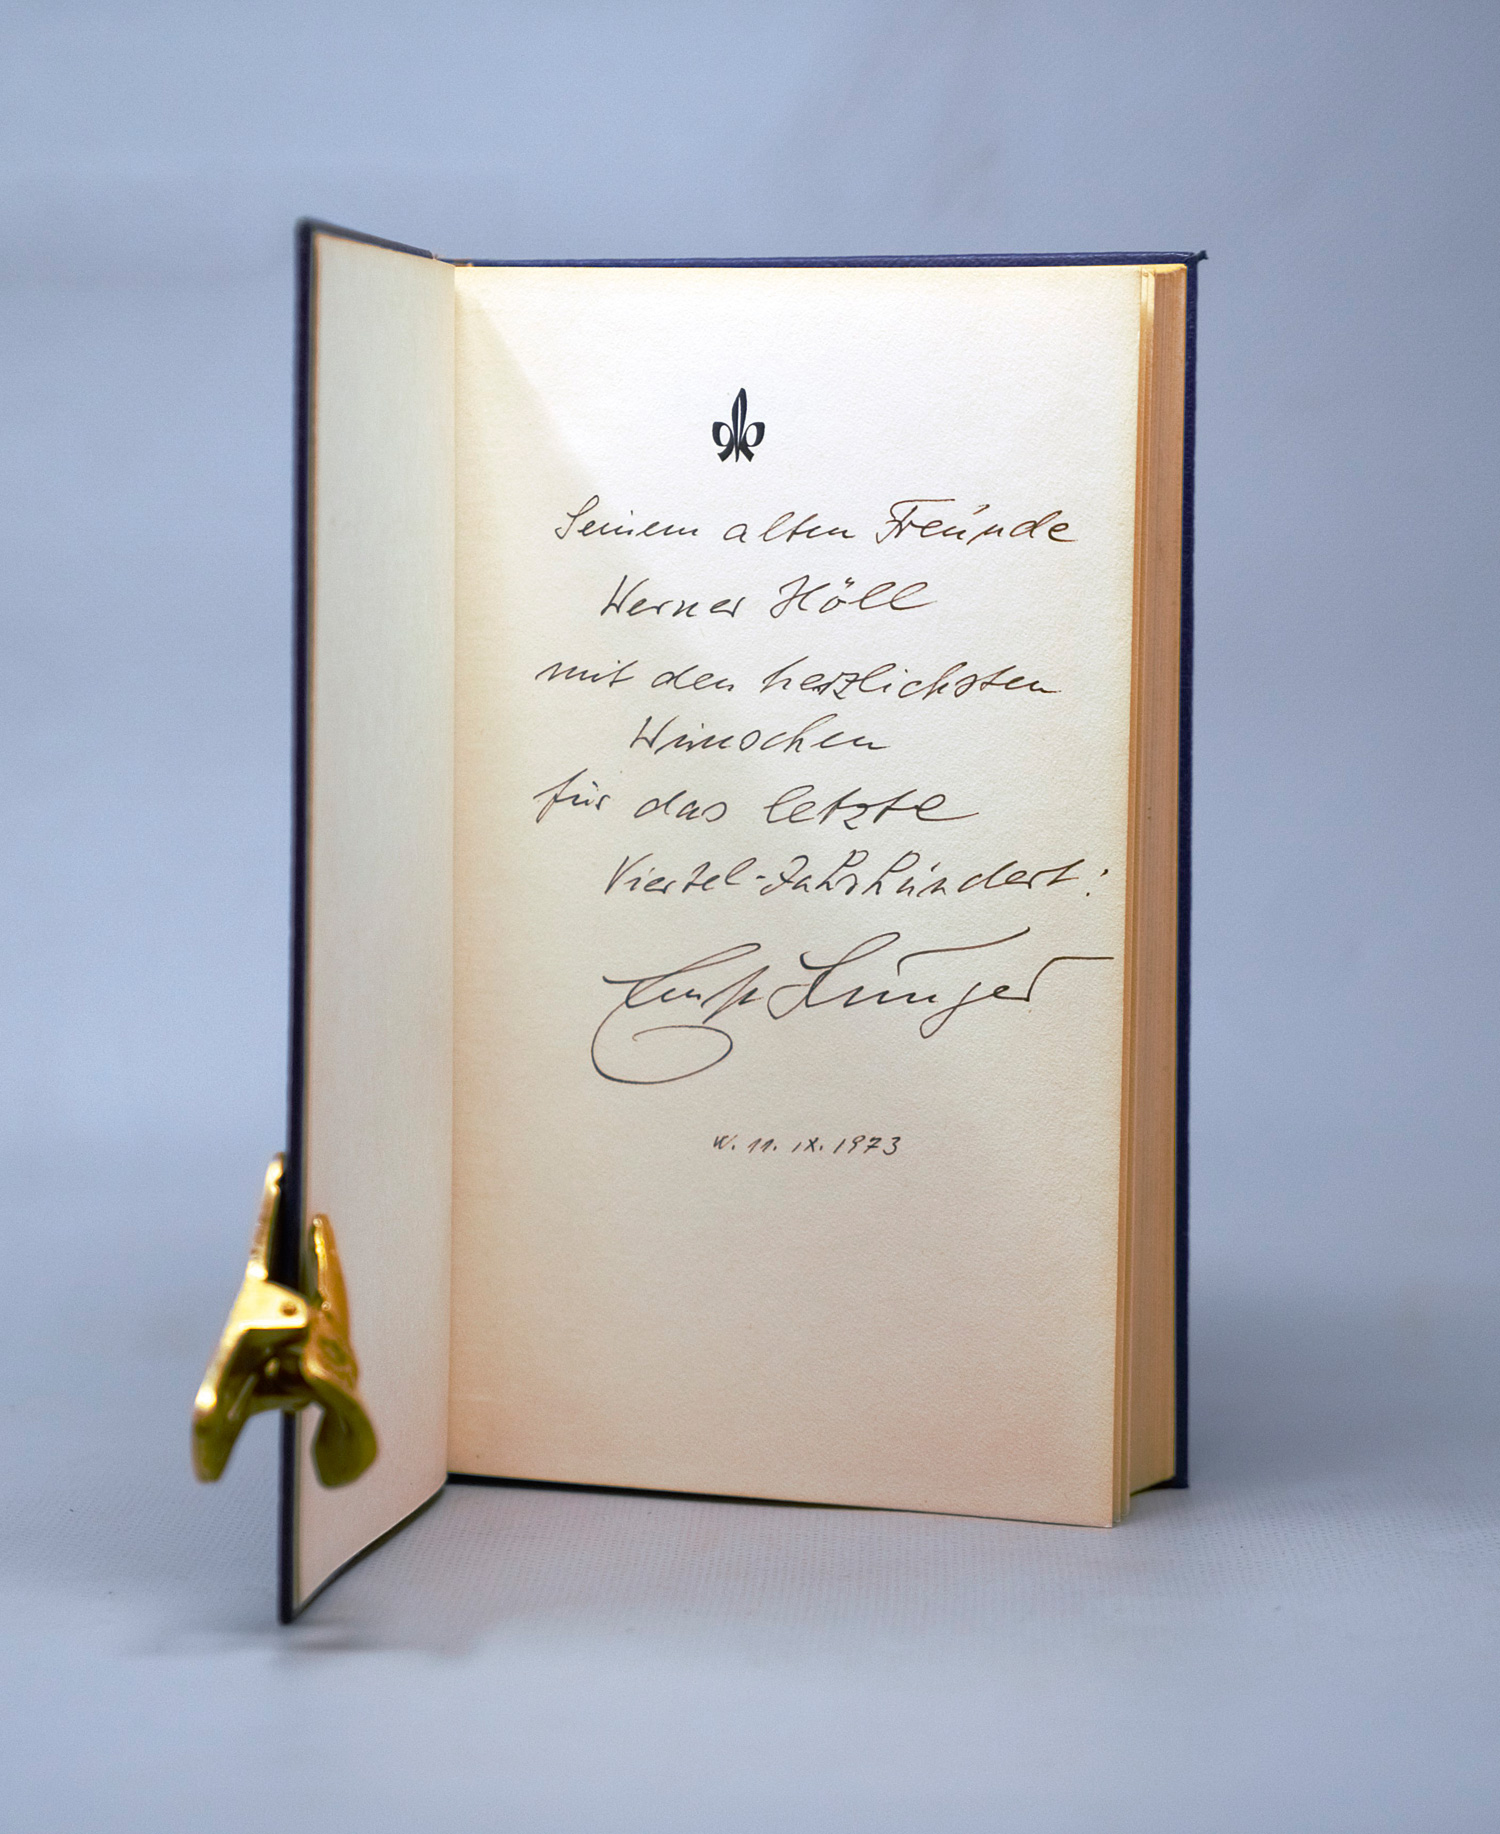 Seinem alten Freunde
Werner Höll
mit den herzlichsten
Wünschen
für das letzte
Viertel-Jahrhundert:
Ernst Jünger
W. 11. IX. 1973